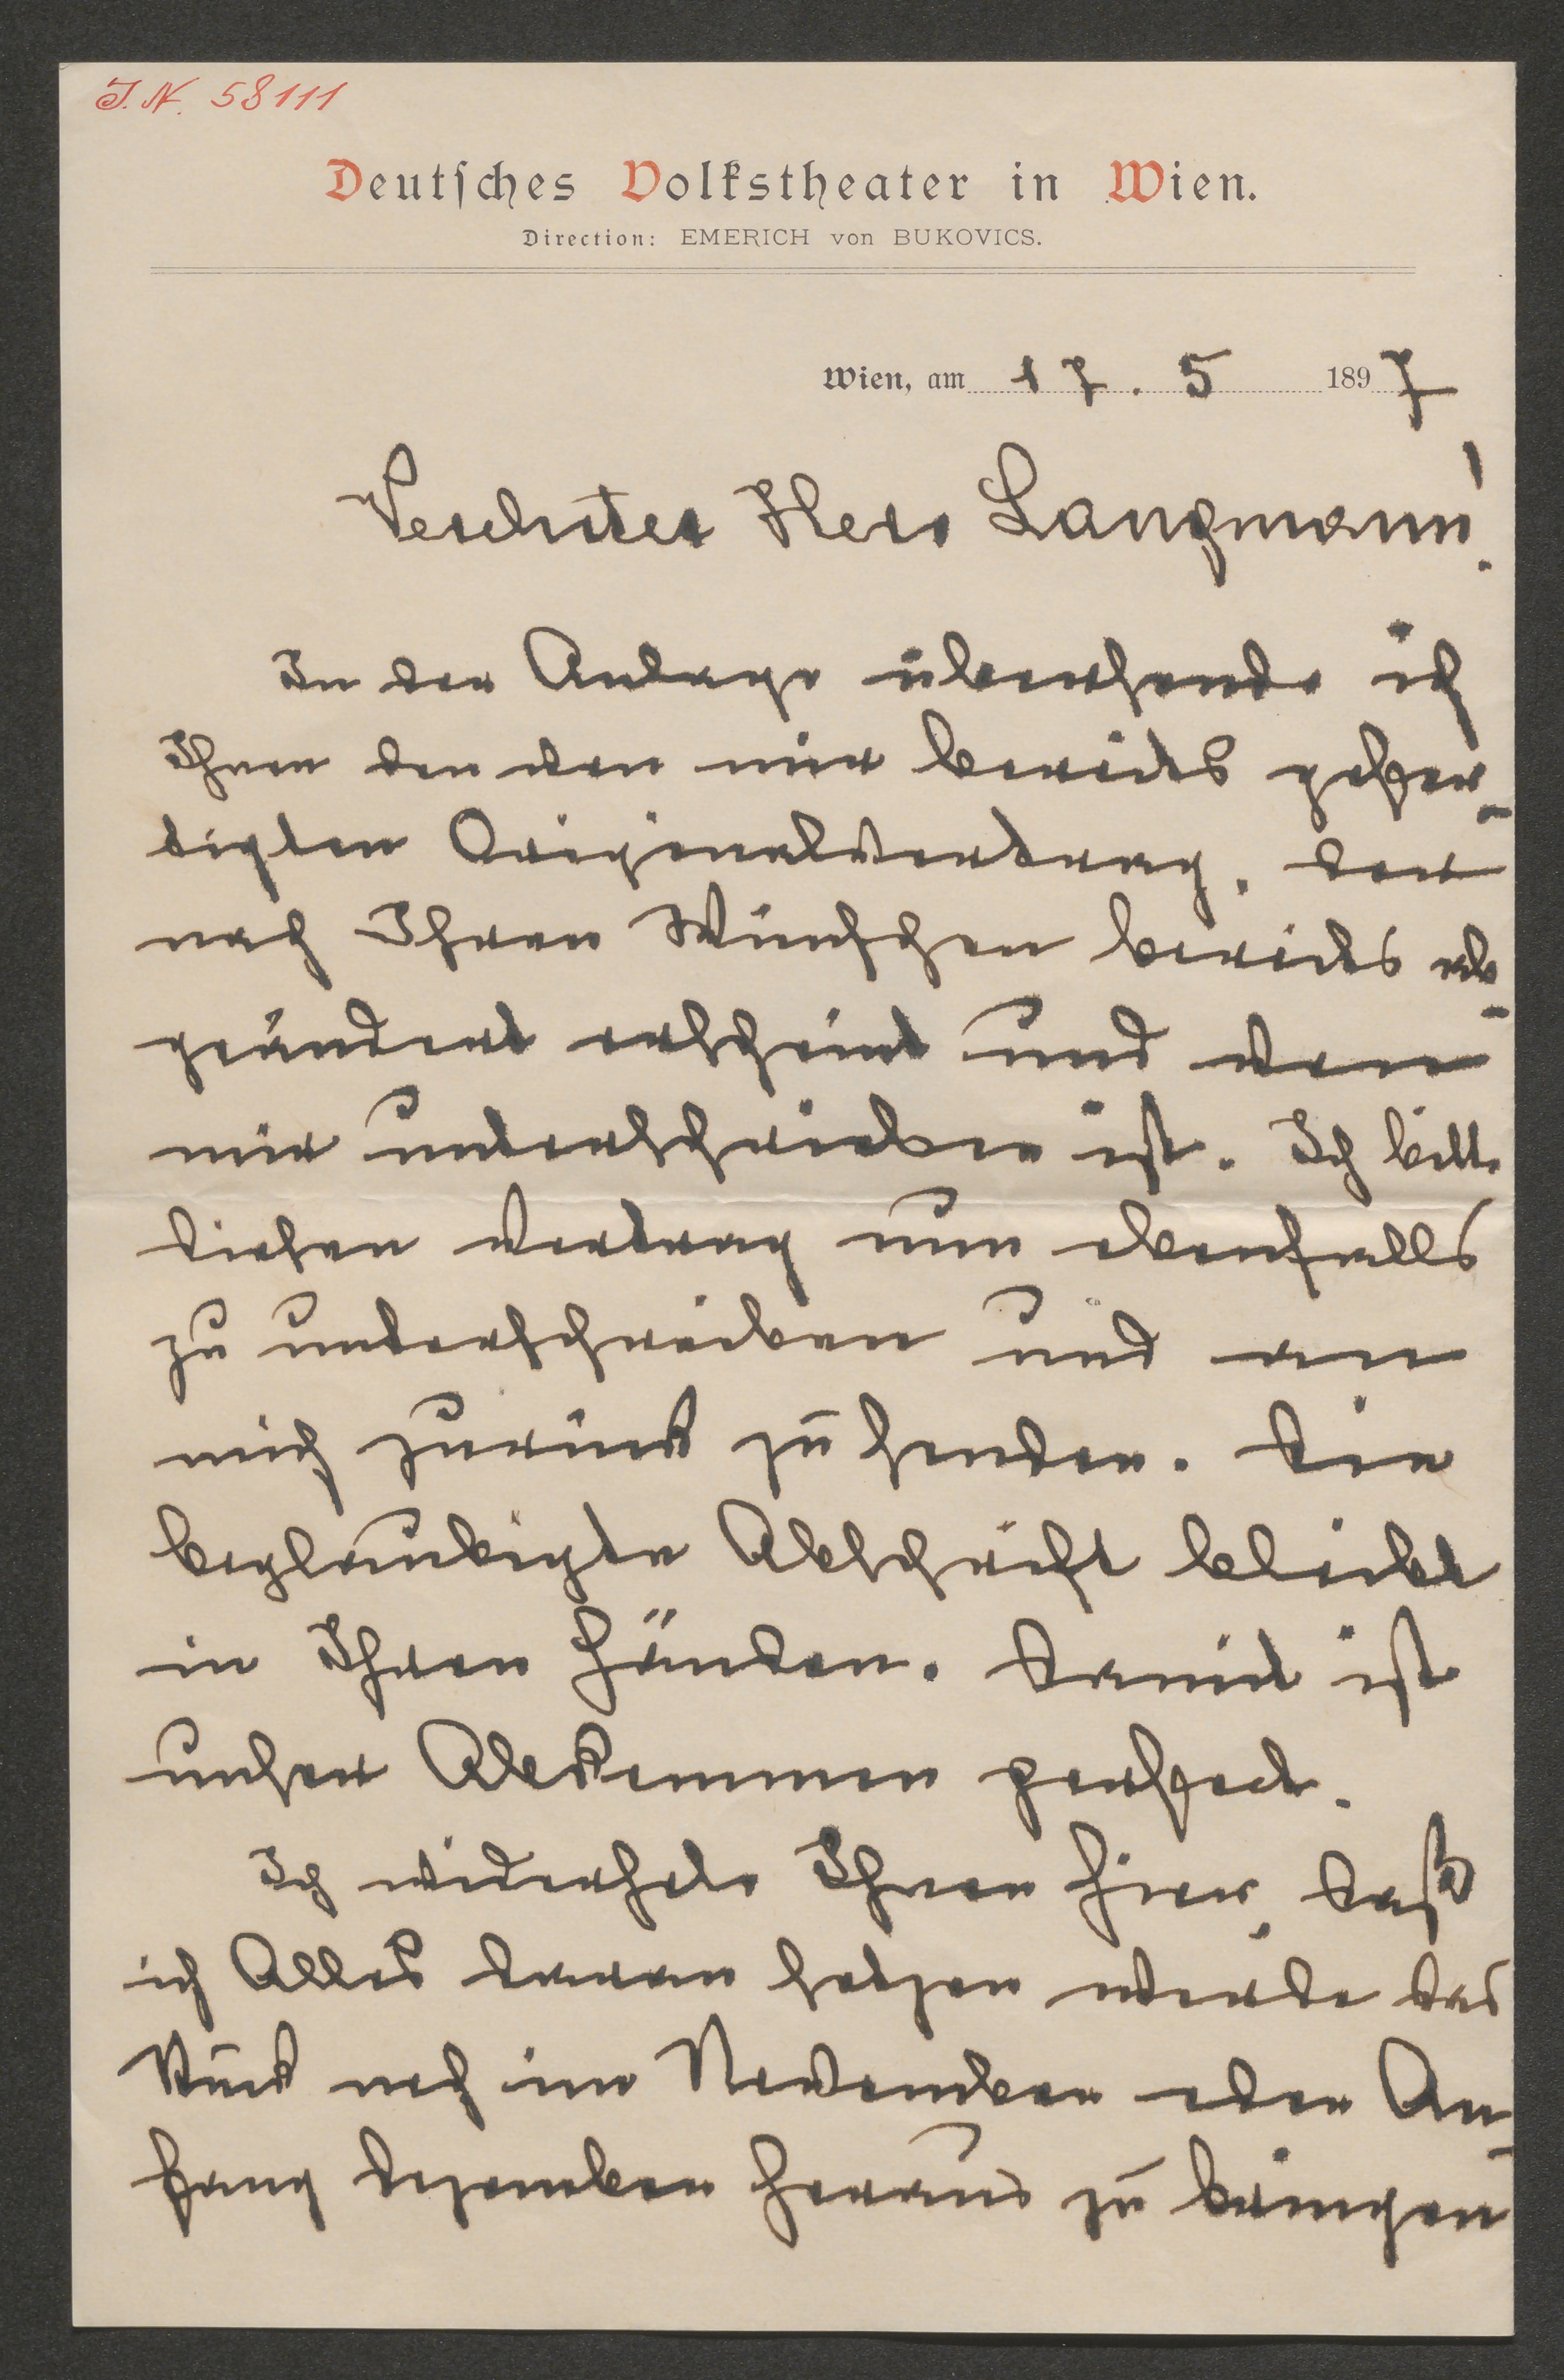 J. N. 58111
Deutsches Volkstheater in Wien.
Direction: EMERICH von BUKOVICS.
Wien, am 17. 5 1897
Verehrter Herr Langmann!
In der Anlage übersende ich
Ihnen den von mir bereits gefer-
tigten Originalvertrag, der
nach Ihren Wünschen bereits ab-
geändert erscheint und von
mir unterschrieben ist. Ich bitte
diesen Vertrag nun ebenfalls
zu unterschreiben und an
mich zurück zu senden. Die
beglaubigte Abschrift bleibt
in Ihren Händen. Damit ist
unser Abkommen perfect.
Ich widerhole Ihnen hier, daß
ich Alles daran setzen werde das
Stück noch im November oder An-
fang Dezember heraus zu bringen